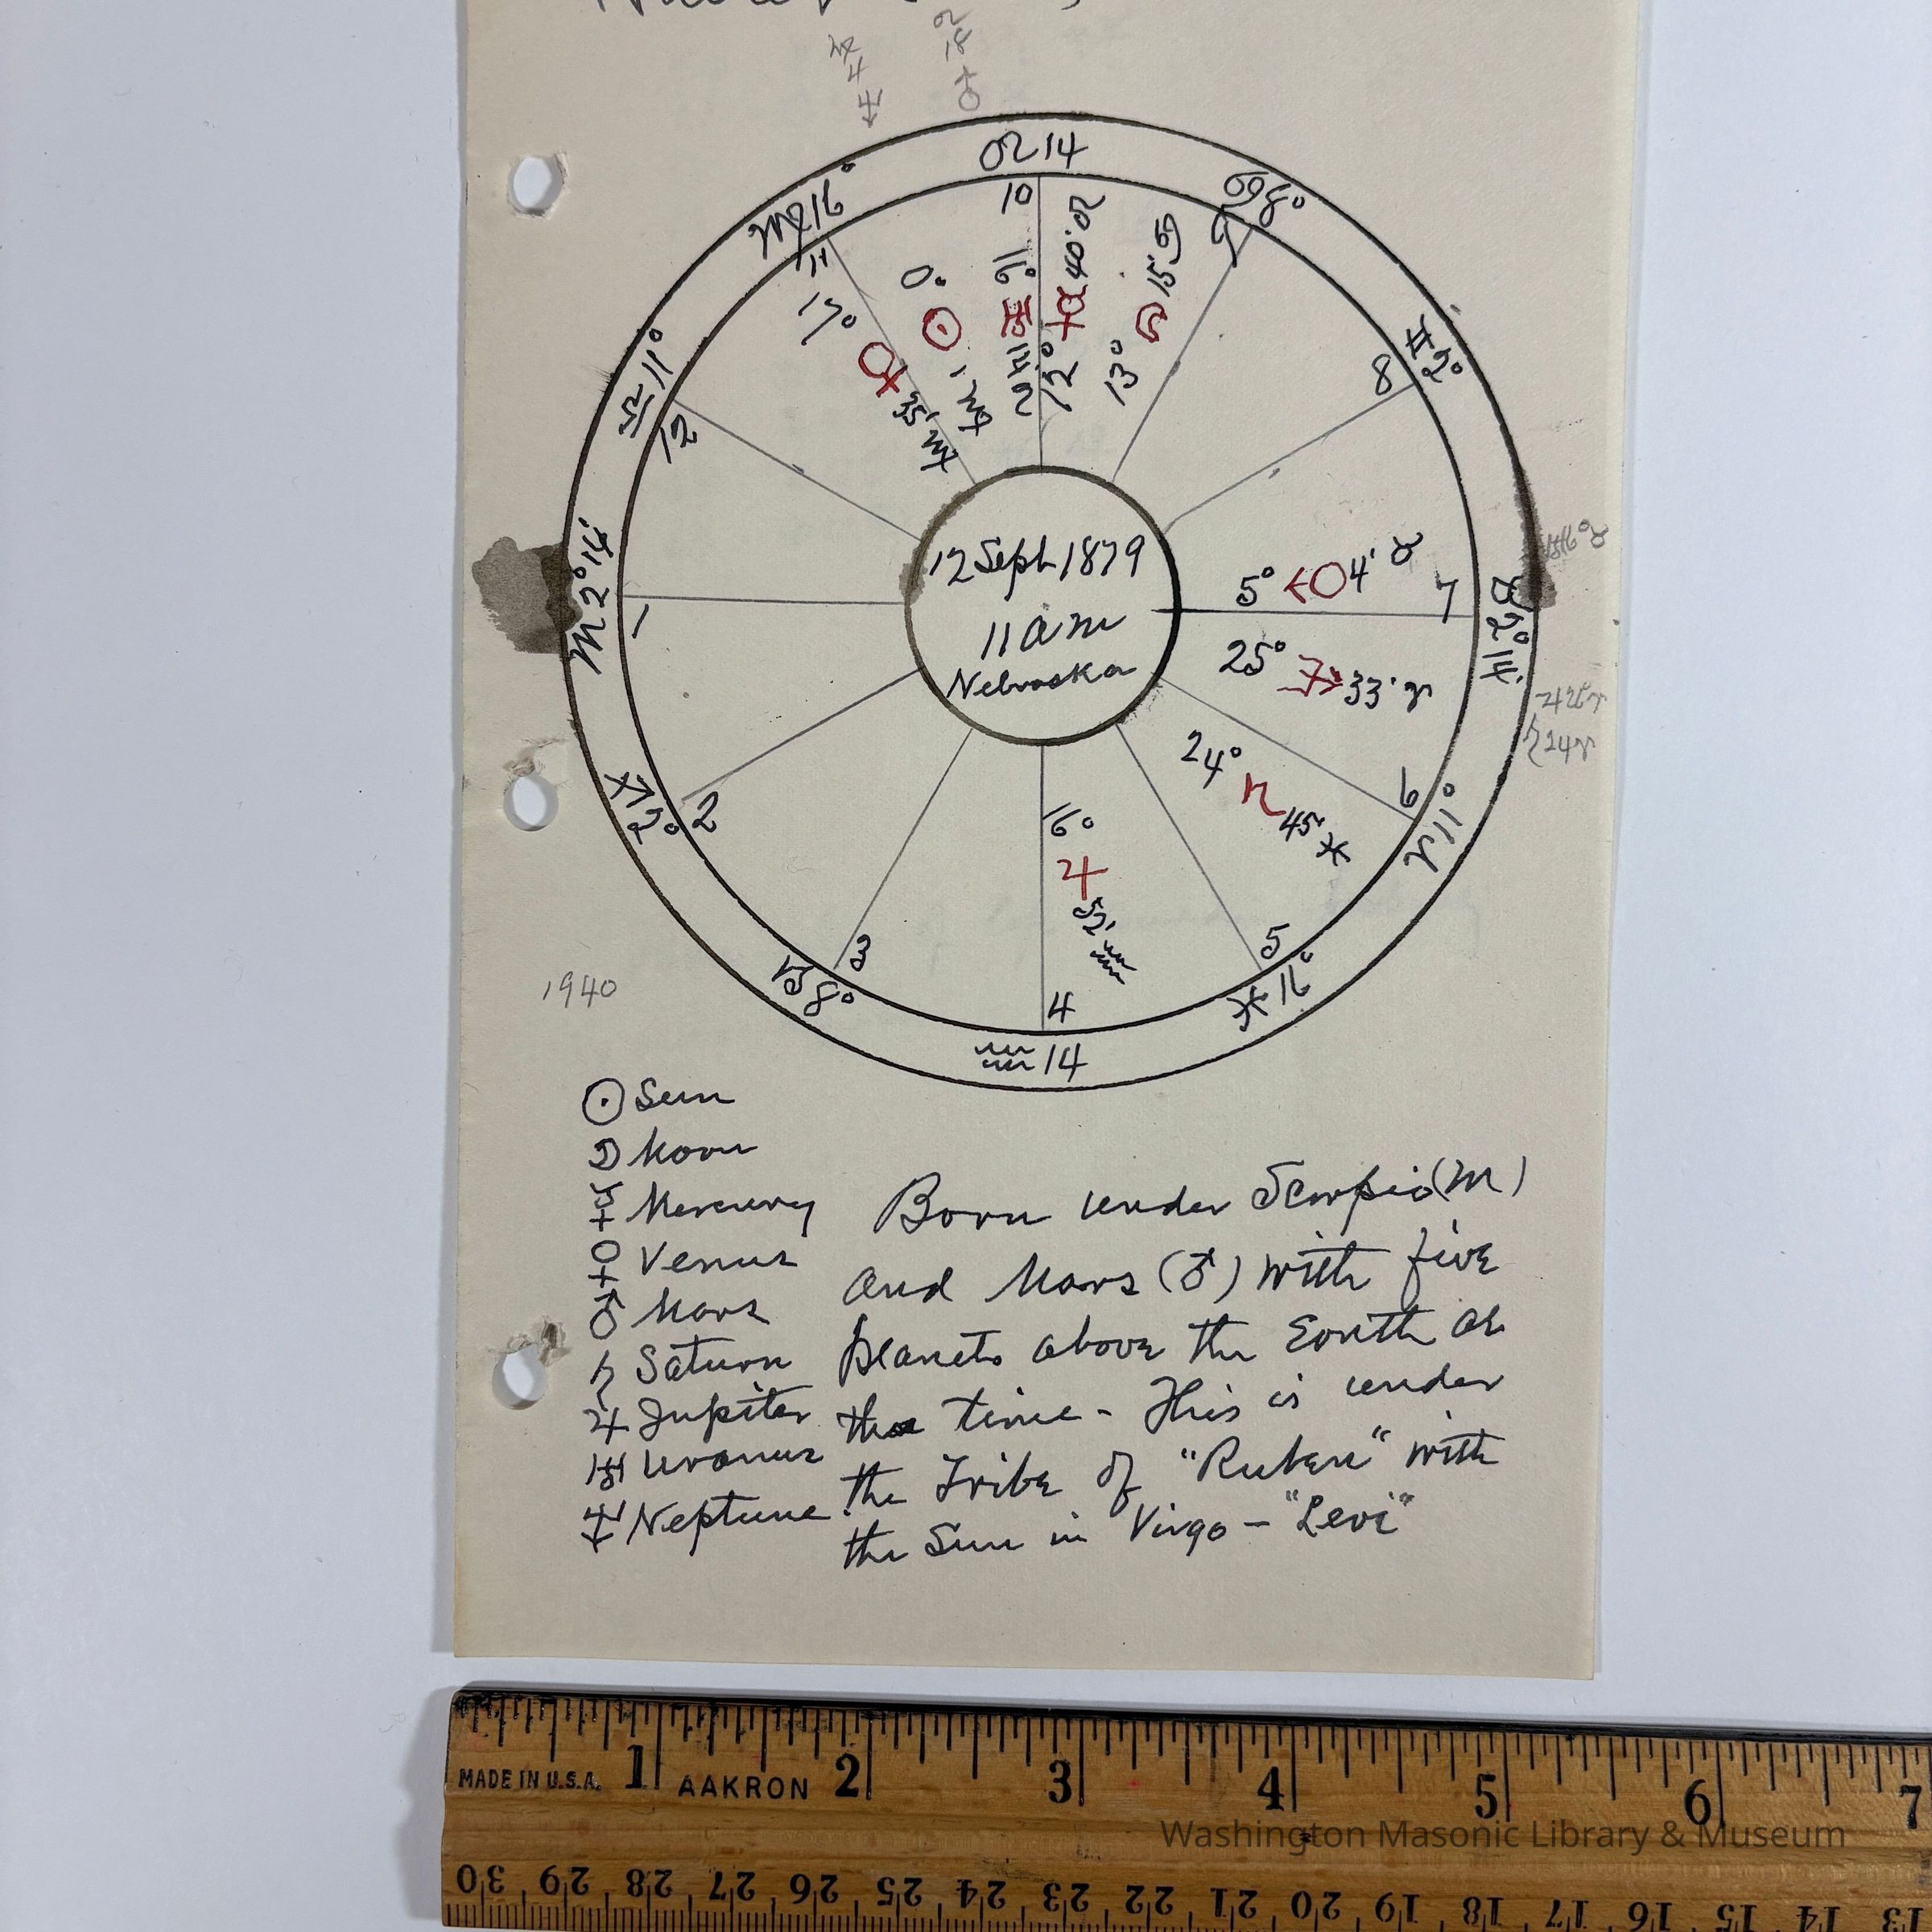 ♌ 18 ♂
♍ 4 ♆
♌ 14
♋ 8°
♊ 2°
♉ 2° 14'
♈ 11°
♓ 16°
♒ 14
♑ 8°
♐ 2°
♏ 2° 14'
♎ 11°
♍ 16°
10
11
12
1
2
3
4
5
6
7
8
0° ☉ 1' ♍
16° ♅ 14' ♌
12° ☿ 40' ♌
13° ☽ 15' ♋
5° ♂ 4' ♉
25° 33' ♈
24° ♄ 45' ♓
6° ♃ 52' ♒
12 Sept 1879
11 am
Nebraska
♄ 24 ♈
1940
☉ Sun
☽ Moon
☿ Mercury
♀ Venus
♂ Mars
♄ Saturn
♃ Jupiter
♅ Uranus
♆ Neptune
Born under Scorpio (♏)
and Mars (♂) with five
planets above the Earth at
the time - This is under
the Tribe of "Ruben" with
the Sun in Virgo - "Levi"
MADE IN U.S.A. 1 AAKRON 2 3 4 5 6 7
Washington Masonic Library & Museum
30 29 28 27 26 25 24 23 22 21 20 19 18 17 16 15 14 13